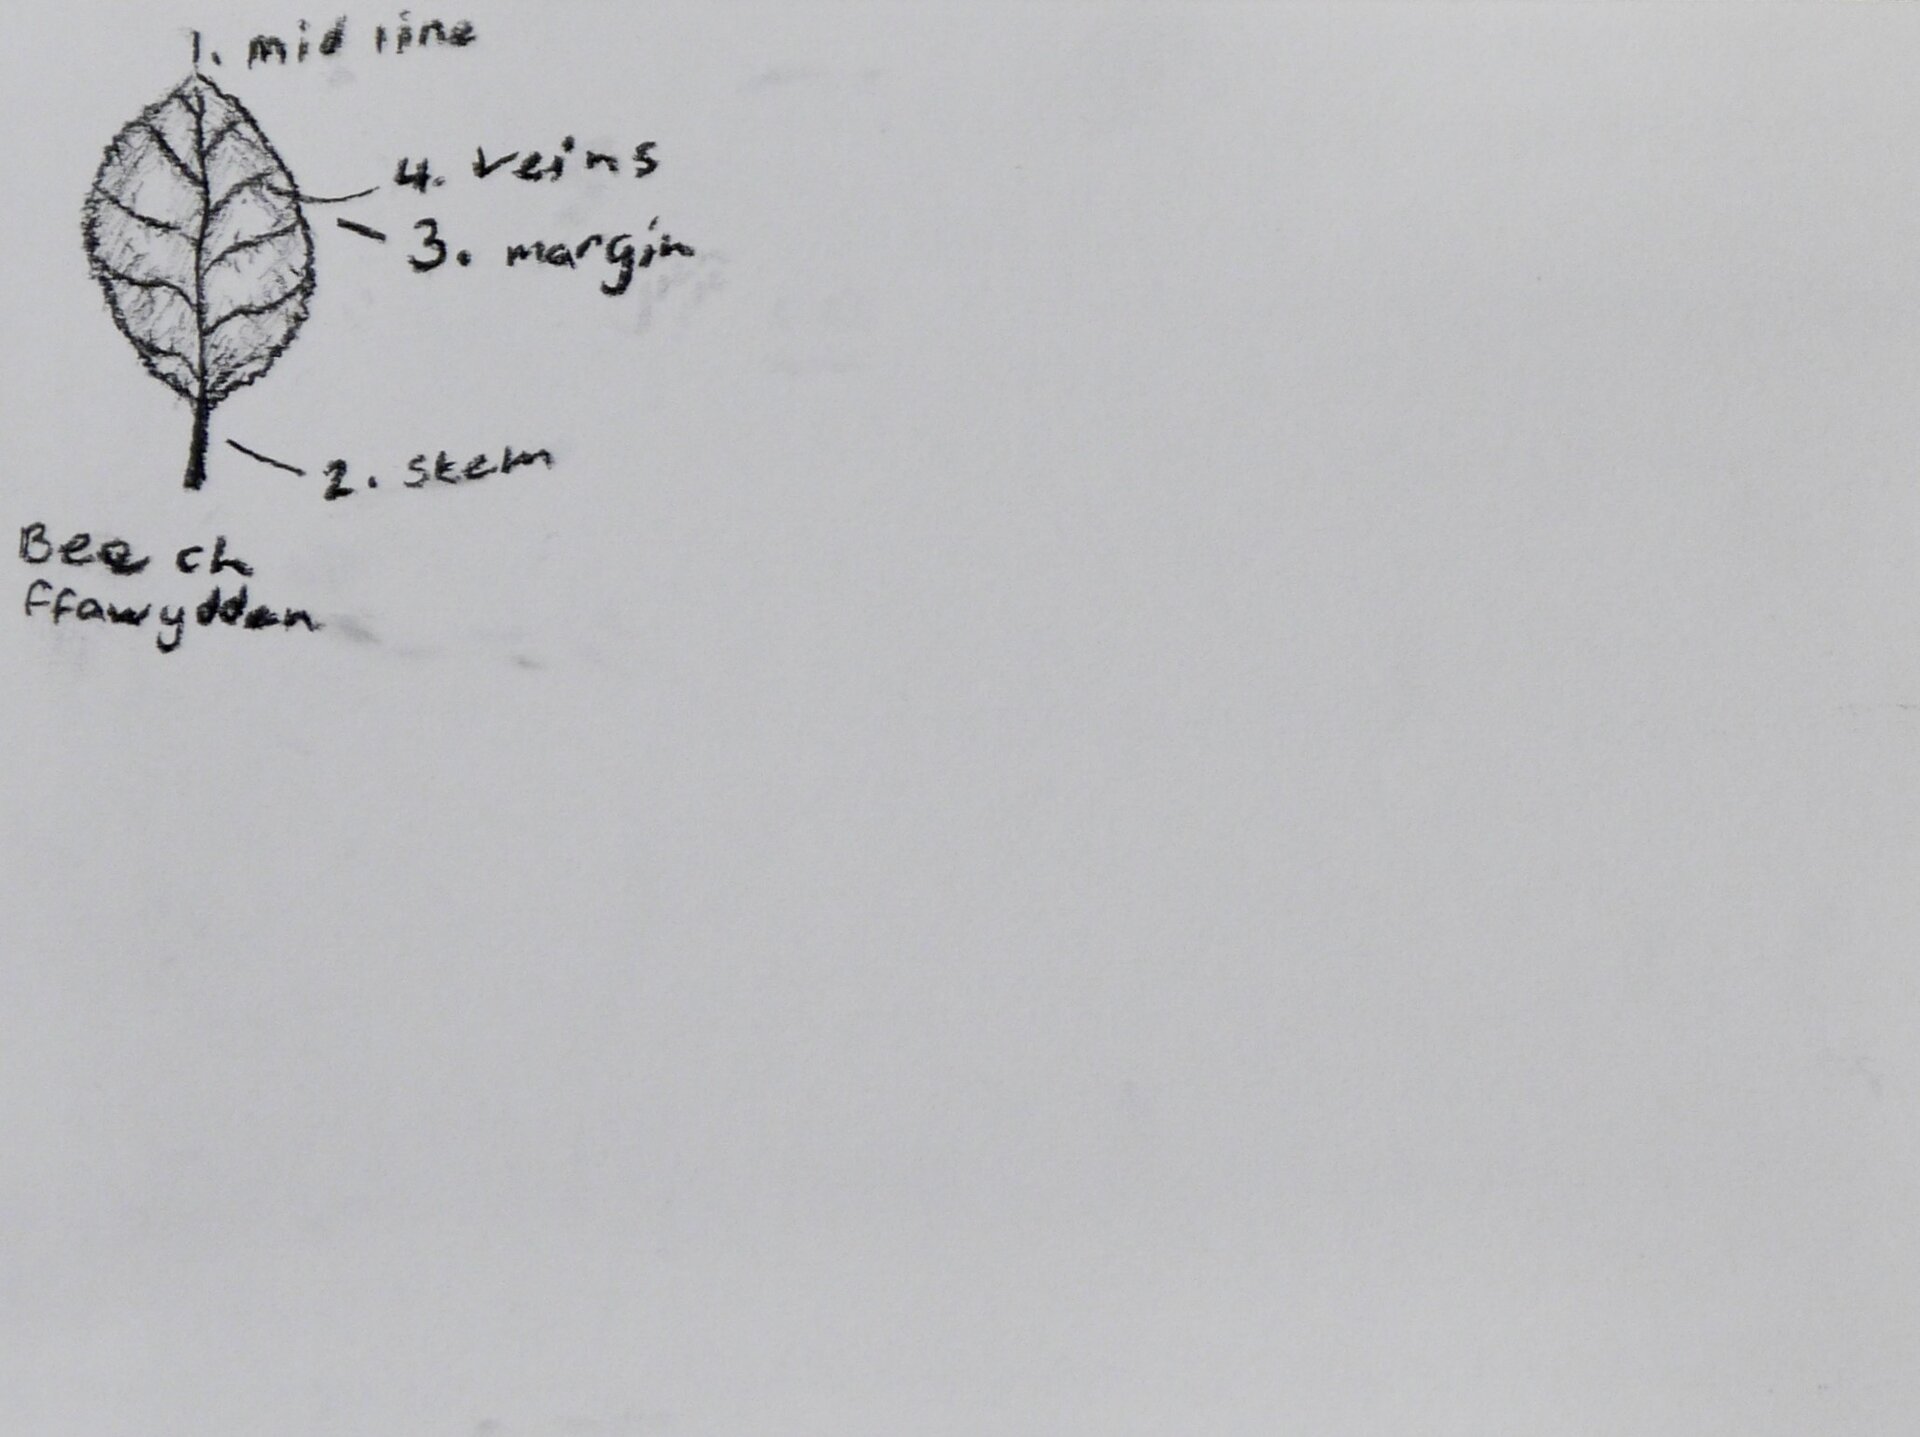 1. mid line
4. veins
3. margin
2. stem
Beech
ffawydden